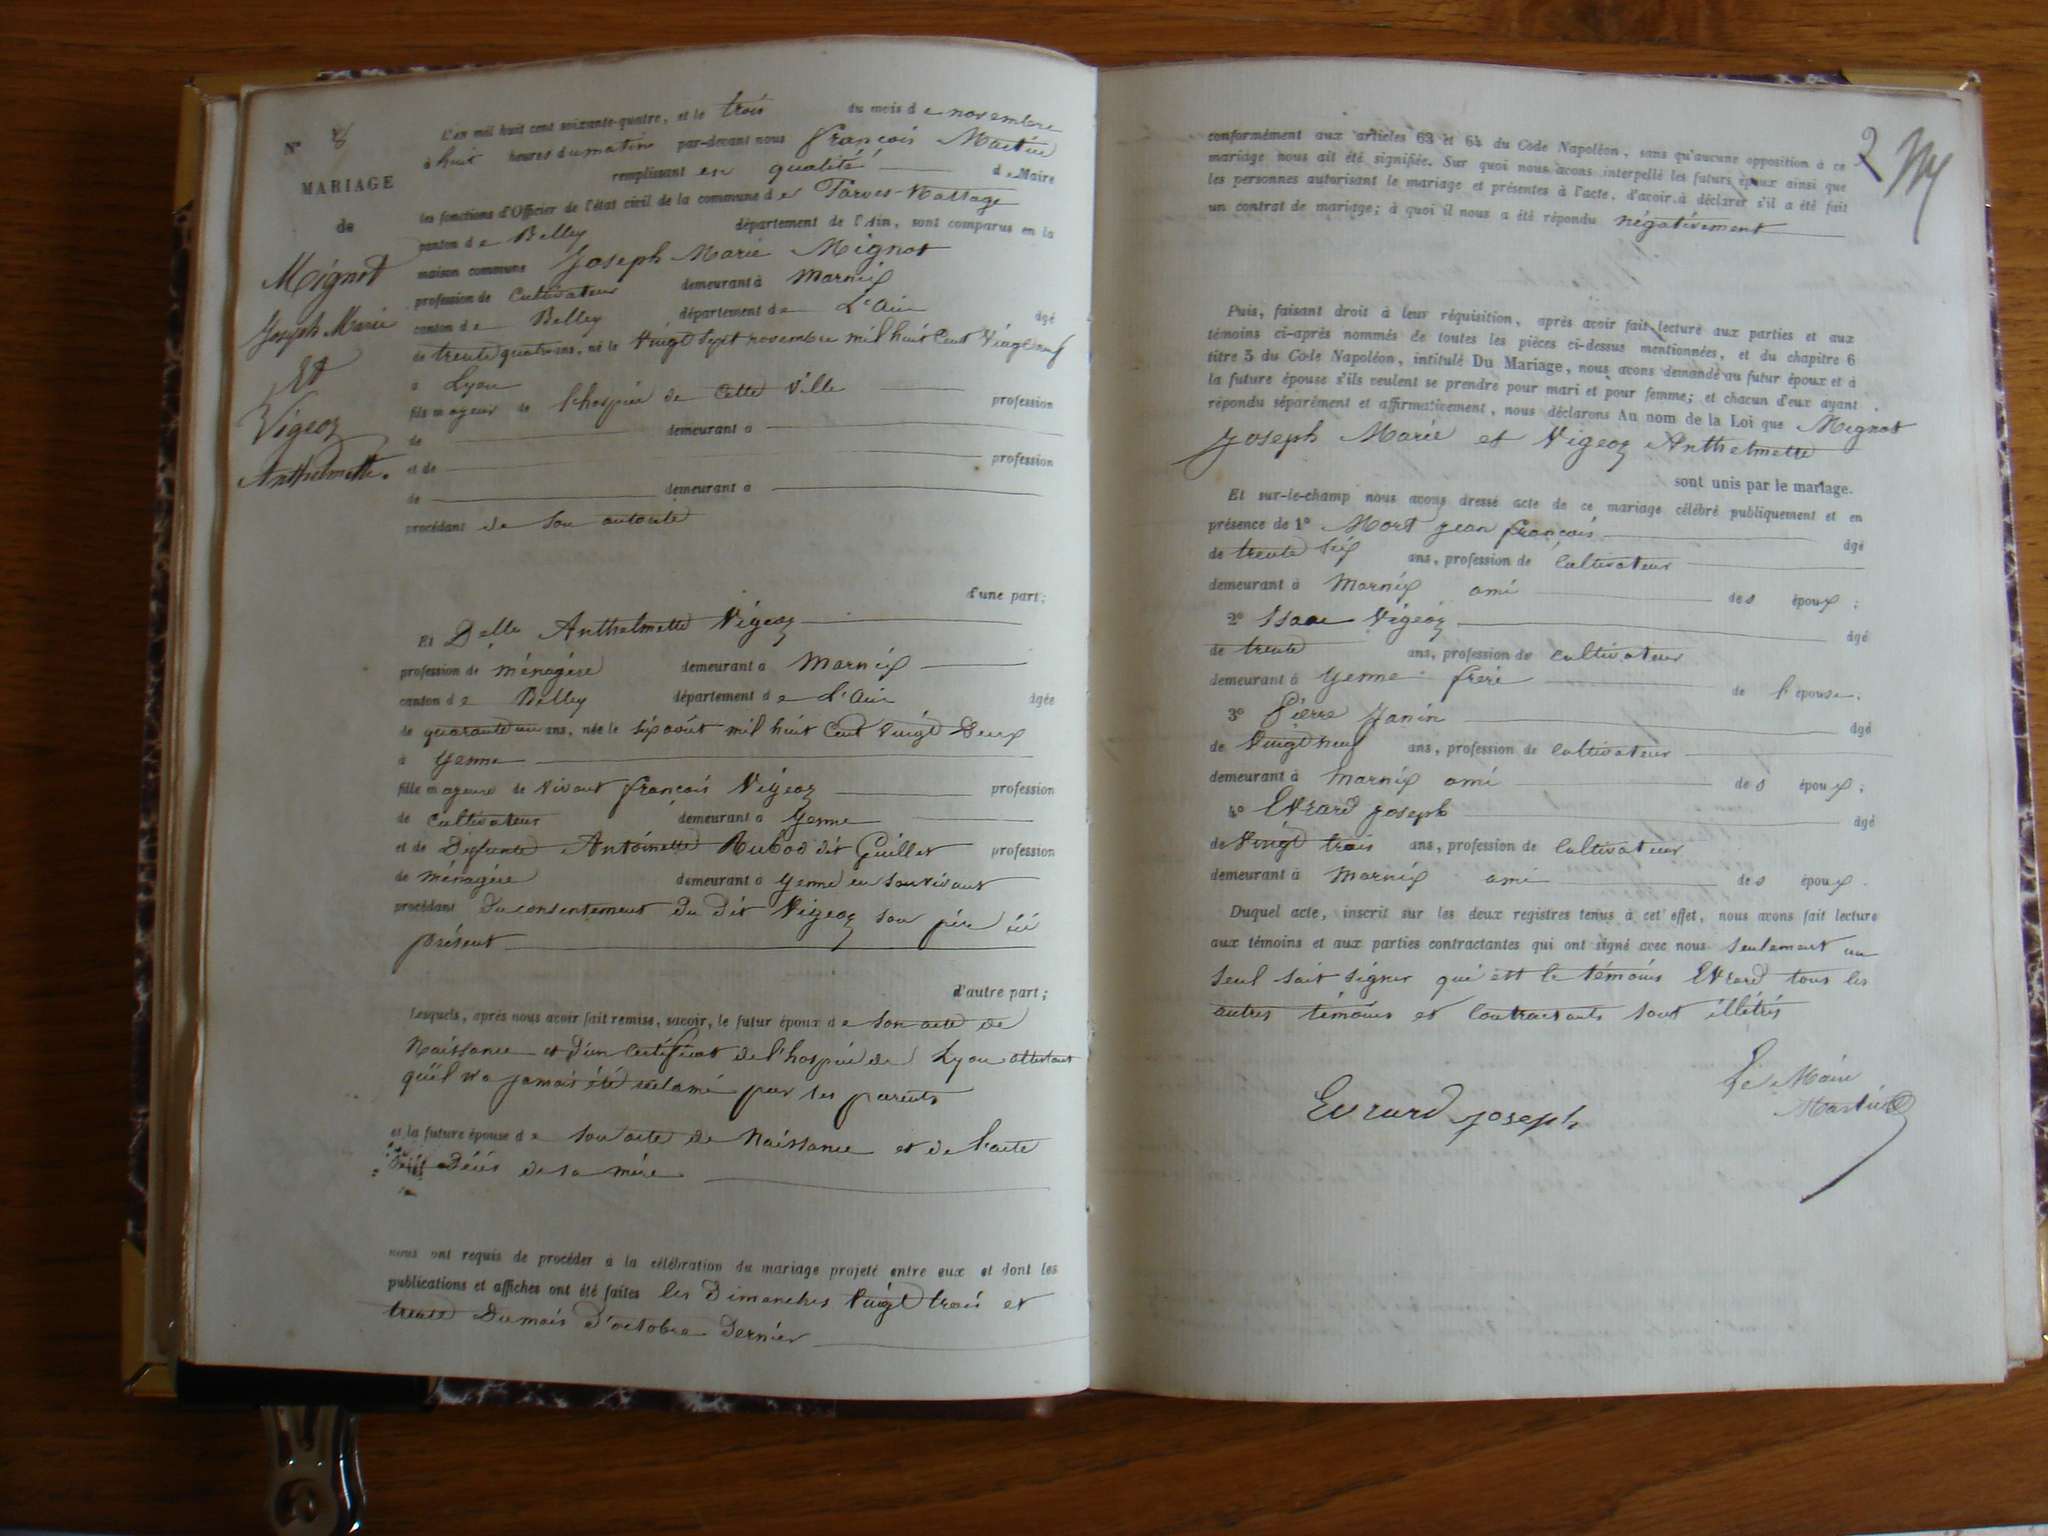 N° 8
MARIAGE
de
Mignot
Joseph Marie
Et
Vigeoz
Anthelmette.
L'an mil huit cent soixante-quatre, et le trois du mois de novembre
à huit heures du matin par-devant nous françois Martin
remplissant en qualité de Maire
les fonctions d'Officier de l'état civil de la commune de Parves-Nattage
canton de Belley département de l'Ain, sont comparus en la
maison commune Joseph Marie Mignot
profession de Cultivateur demeurant à Marnix
canton de Belley département de L'ain âgé
de trente quatre ans, né le vingt sept novembre mil huit Cent Vingt neuf
à Lyon
fils majeur de l'hospice de Cette Ville profession
de demeurant à
et de profession
de demeurant à
procédant de son autorité
d'une part;
Et Delle Anthelmette Vigeoz
profession de ménagère demeurant à Marnix
canton de Belley département de L'ain âgée
de quarante un ans, née le six août mil huit Cent vingt Deux
à Yenne
fille majeure de vivant françois Vigeoz profession
de Cultivateur demeurant à Yenne
et de Defunte Antoinette Rubod dit Guillet profession
de ménagère demeurant à Yenne en son vivant
procédant Du consentement Du dit Vigeoz son père ici
présent
d'autre part;
Lesquels, après nous avoir fait remise, savoir, le futur époux de son acte de
Naissance et d'un Certificat de l'hospice de Lyon attestant
qu'il n'a jamais été réclamé par ses parents
et la future épouse de son acte de Naissance et de l'acte
Décès de sa mère
nous ont requis de procéder à la célébration du mariage projeté entre eux et dont les
publications et affiches ont été faites les Dimanches Vingt trois et
trente Du mois D'octobre Dernier
2
conformément aux articles 63 et 64 du Code Napoléon, sans qu'aucune opposition à ce
mariage nous ait été signifiée. Sur quoi nous avons interpellé les futurs époux ainsi que
les personnes autorisant le mariage et présentes à l'acte, d'avoir à déclarer s'il a été fait
un contrat de mariage; à quoi il nous a été répondu négativement
Puis, faisant droit à leur réquisition, après avoir fait lecture aux parties et aux
témoins ci-après nommés de toutes les pièces ci-dessus mentionnées, et du chapitre 6
titre 5 du Code Napoléon, intitulé Du Mariage, nous avons demandé au futur époux et à
la future épouse s'ils veulent se prendre pour mari et pour femme; et chacun d'eux ayant
répondu séparément et affirmativement, nous déclarons Au nom de la Loi que Mignot
Joseph Marie et Vigeoz Anthelmette
sont unis par le mariage.
Et sur-le-champ nous avons dressé acte de ce mariage célébré publiquement et en
présence de 1° Mort jean françois âgé
de trente six ans, profession de Cultivateur
demeurant à Marnix ami des époux;
2° Isaac Vigeoz âgé
de trente ans, profession de cultivateur
demeurant à Yenne frère de l'épouse.
3° Pierre Janin âgé
de Vingt neuf ans, profession de cultivateur
demeurant à Marnix ami des époux;
4° EVrard joseph âgé
de Vingt trois ans, profession de Cultivateur
demeurant à Marnix ami des époux.
Duquel acte, inscrit sur les deux registres tenus à cet effet, nous avons fait lecture
aux témoins et aux parties contractantes qui ont signé avec nous seulement un
seul sait signer qui est le témoins EVrard tous les
autres témoins et Contractants sont illétrés
Evrard joseph
Le Maire
Martin